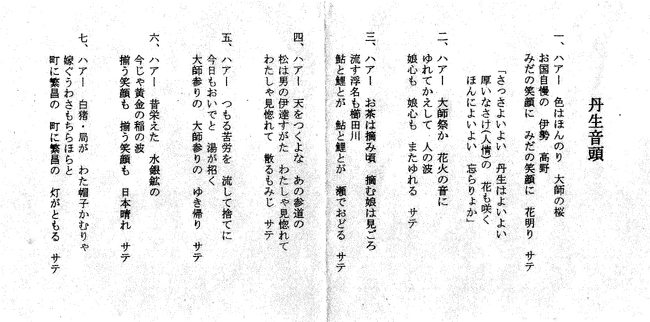 丹生音頭
一、ハアー 色はほんのり 大師の桜
お国自慢の 伊勢 高野
みだの笑顔に みだの笑顔に 花明り サテ
「さっさよいよい 丹生はよいよい
厚いなさけ(人情)の 花も咲く
ほんによいよい 忘らりょか」
二、ハアー 大師祭か 花火の音に
ゆれてかえして 人の波
娘心も 娘心も またゆれる サテ
三、ハアー お茶は摘み頃 摘む娘は見ごろ
流す浮名も櫛田川
鮎と鯉とが 鮎と鯉とが 瀬でおどる サテ
四、ハアー 天をつくよな あの参道の
松は男の伊達すがた わたしゃ見惚れて
わたしゃ見惚れて 散るもみじ サテ
五、ハアー つもる苦労を 流して捨てに
今日もおいでと 湯が招く
大師参りの 大師参りの ゆき帰り サテ
六、ハアー 昔栄えた 水銀鉱の
今じゃ黄金の稲の波
揃う笑顔も 揃う笑顔も 日本晴れ サテ
七、ハアー 白猪・局が わた帽子かむりゃ
嫁ぐうわさもちらほらと
町に繁昌の 町に繁昌の 灯がともる サテ